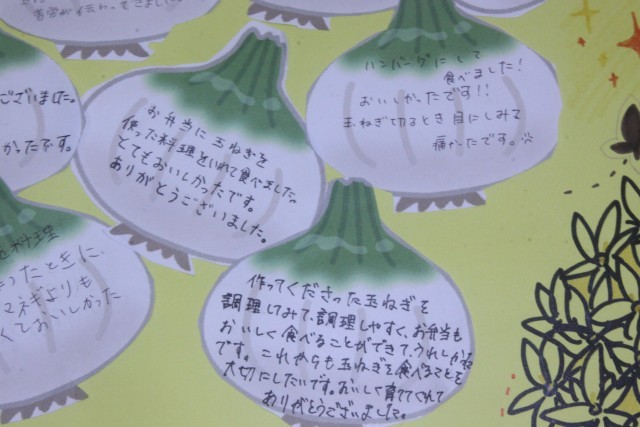 苦労が伝わってきました
ございました。
かったです。
お弁当に玉ねぎを
使った料理をいれて食べました。
とてもおいしかったです。
ありがとうございました。
ハンバーグにして
食べました!
おいしかったです!!
玉ねぎ切るとき目にしみて
痛かったです。
料理
ったときに、
マネギよりも
くておいしかった
作ってくださった玉ねぎを
調理してみて、調理しやすく、お弁当も
おいしく食べることができて、うれしかった
です。これからも玉ねぎを食べることを
大切にしたいです。おいしく育ててくれて
ありがとうございました。